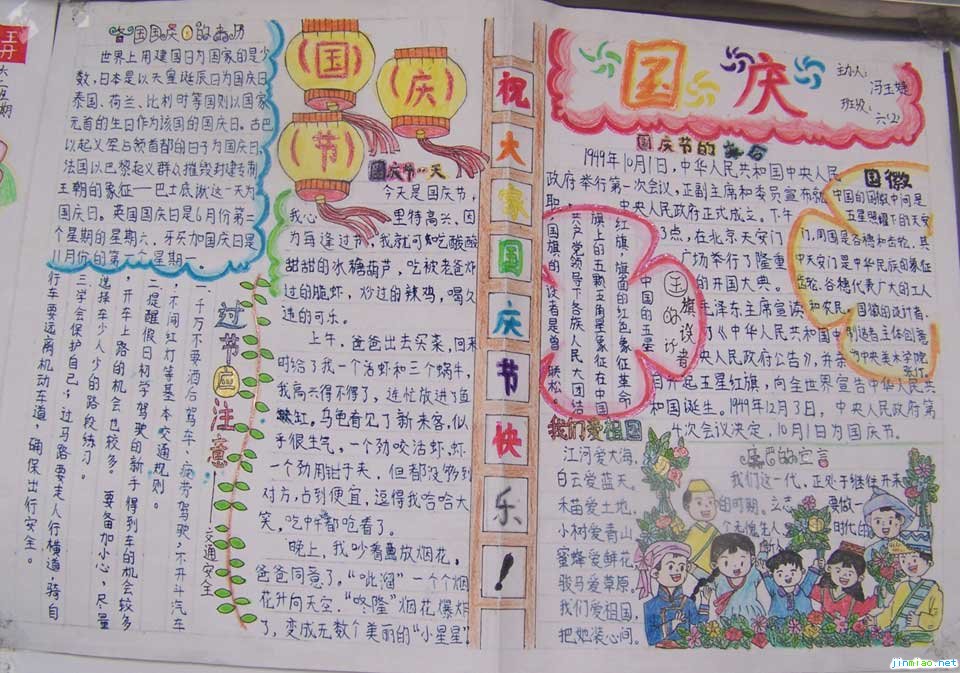 各国国庆日的来历
世界上用建国日为国家的是少
数,日本是以天皇诞辰日为国庆日
泰国、荷兰、比利时等国则以国家
元首的生日作为该国的国庆日。古巴
以起义军占领首都的日子为国庆日
法国以巴黎起义群众摧毁封建专制
王朝的象征——巴士底狱这一天为
国庆日。英国国庆日是6月份第二
个星期的星期六,牙买加国庆日是
月份的第一个星期一。
过节应注意
交通安全
一千万不要酒后驾车、疲劳驾驶,不开斗汽车
,不闯红灯等基本交通规则。
二提醒假日初学驾驶的新手得到车的机会较多
,开车上路的机会也较多。要备加小心,尽量
选择车少人少的路段练习。
三学会保护自己,过马路要走人行横道,骑自
行车要远离机动车道,确保出行安全。
国庆节
国庆节一天
今天是国庆节,
我心里特高兴、因
为每逢过节,我就可吃酸酸
甜甜的冰糖葫芦,吃被老爸炸
过的脆虾,炒过的辣鸡,喝久
违的可乐。
上午,爸爸出去买菜,回来
时给了我一个活虾和三个蜗牛,
我高兴得不得了,连忙放进了鱼
缸。乌色看见了新来客,似
乎很生气,一个劲咬活虾,虾
一个劲用钳子夹,但都没够到
对方,占到便宜,逗得我哈哈大
笑,吃中午都呛着了。
晚上,我吵着要放烟花,
爸爸同意了。“呲溜”一个个烟
花升向天空,“咚隆”烟花爆炸
了,变成无数个美丽的“小星星”
祝大家国庆节快乐!
国庆
主办人:冯玉婕
班级:六(2)
国庆节的来历
1949年10月1日,中华人民共和国中央人民
政府举行第一次会议,正副主席和委员宣布就
职,中央人民政府正式成立。下午
3点,在北京天安门
广场举行了隆重
的开国大典。
毛泽东主席宣读
了《中华人民共和国中
央人民政府公告》,并亲
自升起五星红旗,向全世界宣告中华人民共
和国诞生。1949年12月3日,中央人民政府第
4次会议决定,10月1日为国庆节。
国旗的设计者
中国的五星
红旗,旗面的红色象征革命,
旗上的五颗五角星象征在中国
共产党领导下各族人民大团结
国旗的设计者是曾联松。
国徽
中国的国徽中间是
五星照耀下的天安
门,周围是谷穗和齿轮,其
中天安门是中华民族的象征
齿轮、谷穗代表广大的工人
和农民。国徽的设计者、
创造者主体创意
为中央美术学院
张仃。
我们爱祖国
江河爱大海,
白云爱蓝天。
禾苗爱土地,
小树爱青山
蜜蜂爱鲜花
骏马爱草原,
我们爱祖国,
把她装心间。
的宣言
我们这一代,正处于继往开来
的时期。立志要做一
个无愧
时代的
jinmiao.net